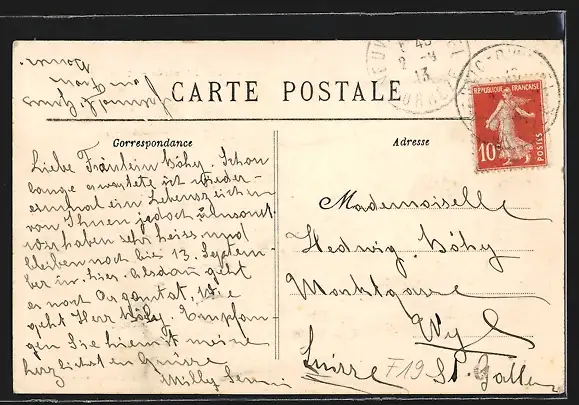 CARTE POSTALE
Correspondance
Adresse
RÉPUBLIQUE FRANÇAISE
10c
POSTES
Liebe Fräulein Böhy. Schon
lange erwartete ich wieder-
einmal ein Lebenszeichen
von Ihnen jedoch umsonst.
Wir haben sehr heiss und
bleiben noch bis 13. Septem-
ber in hier. Alsdann geht
es nach
geht Herr Böhy. Empfan-
gen Sie hiermit meine
herzlichsten Grüsse
Willy
Mademoiselle
Hedwig Böhy
Marktgasse
Wyl
Suisse F19 St. Gallen